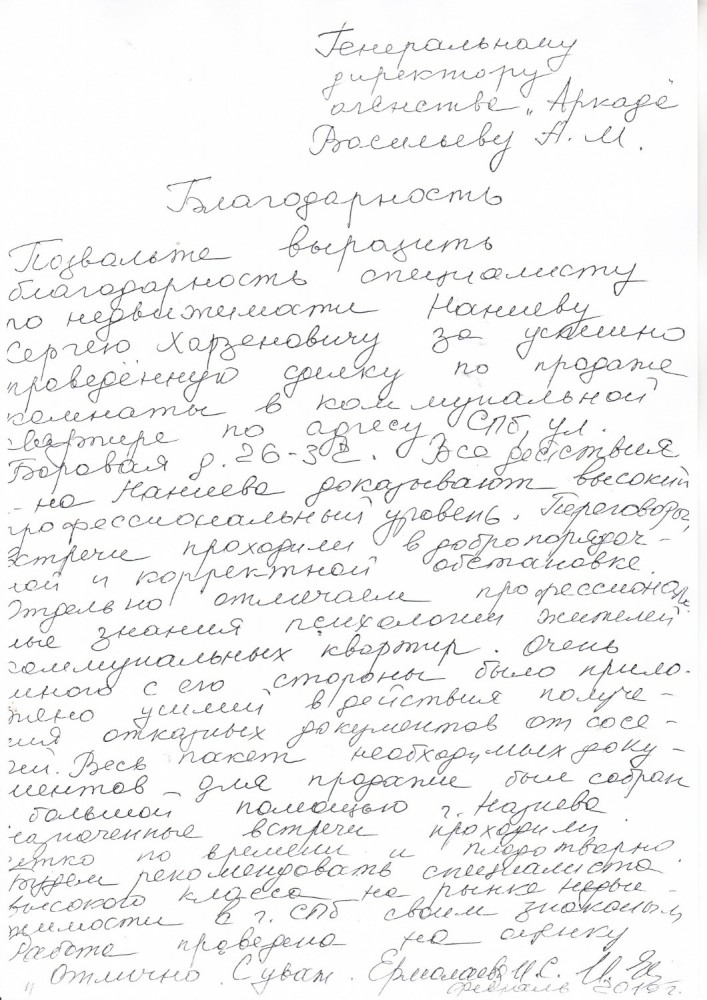 Генеральному
директору
агенства „Аркада"
Васильеву А.М.
Благодарность
Позвольте выразить
благодарность специалисту
по недвижимости Наниеву
Сергею Харзеновичу за успешно
проведённую сделку по продаже
комнаты в коммунальной
квартире по адресу СПб, ул.
Боровая д. 26-32. Все действия
г-на Наниева доказывают высокий
профессиональный уровень. Переговоры,
встречи проходили в добропорядоч-
ной и корректной обстановке.
Отдельно отмечаем профессиональ-
ные знания психологии жителей
коммунальных квартир. Очень
много с его стороны было прило-
жено усилий в действия получе-
ния отказных документов от сосе-
дей. Весь пакет необходимых доку-
ментов для продажи был собран
большой помощью г. Наниева
назначенные встречи проходили
четко по времени и плодотворно.
Будем рекомендовать специалиста
высокого класса на рынке недви-
жимости в г. СПб своим знакомым
Работа проведена на оценку
"Отлично. С уваж. Ермолаева И.С.
февраль 2016г.